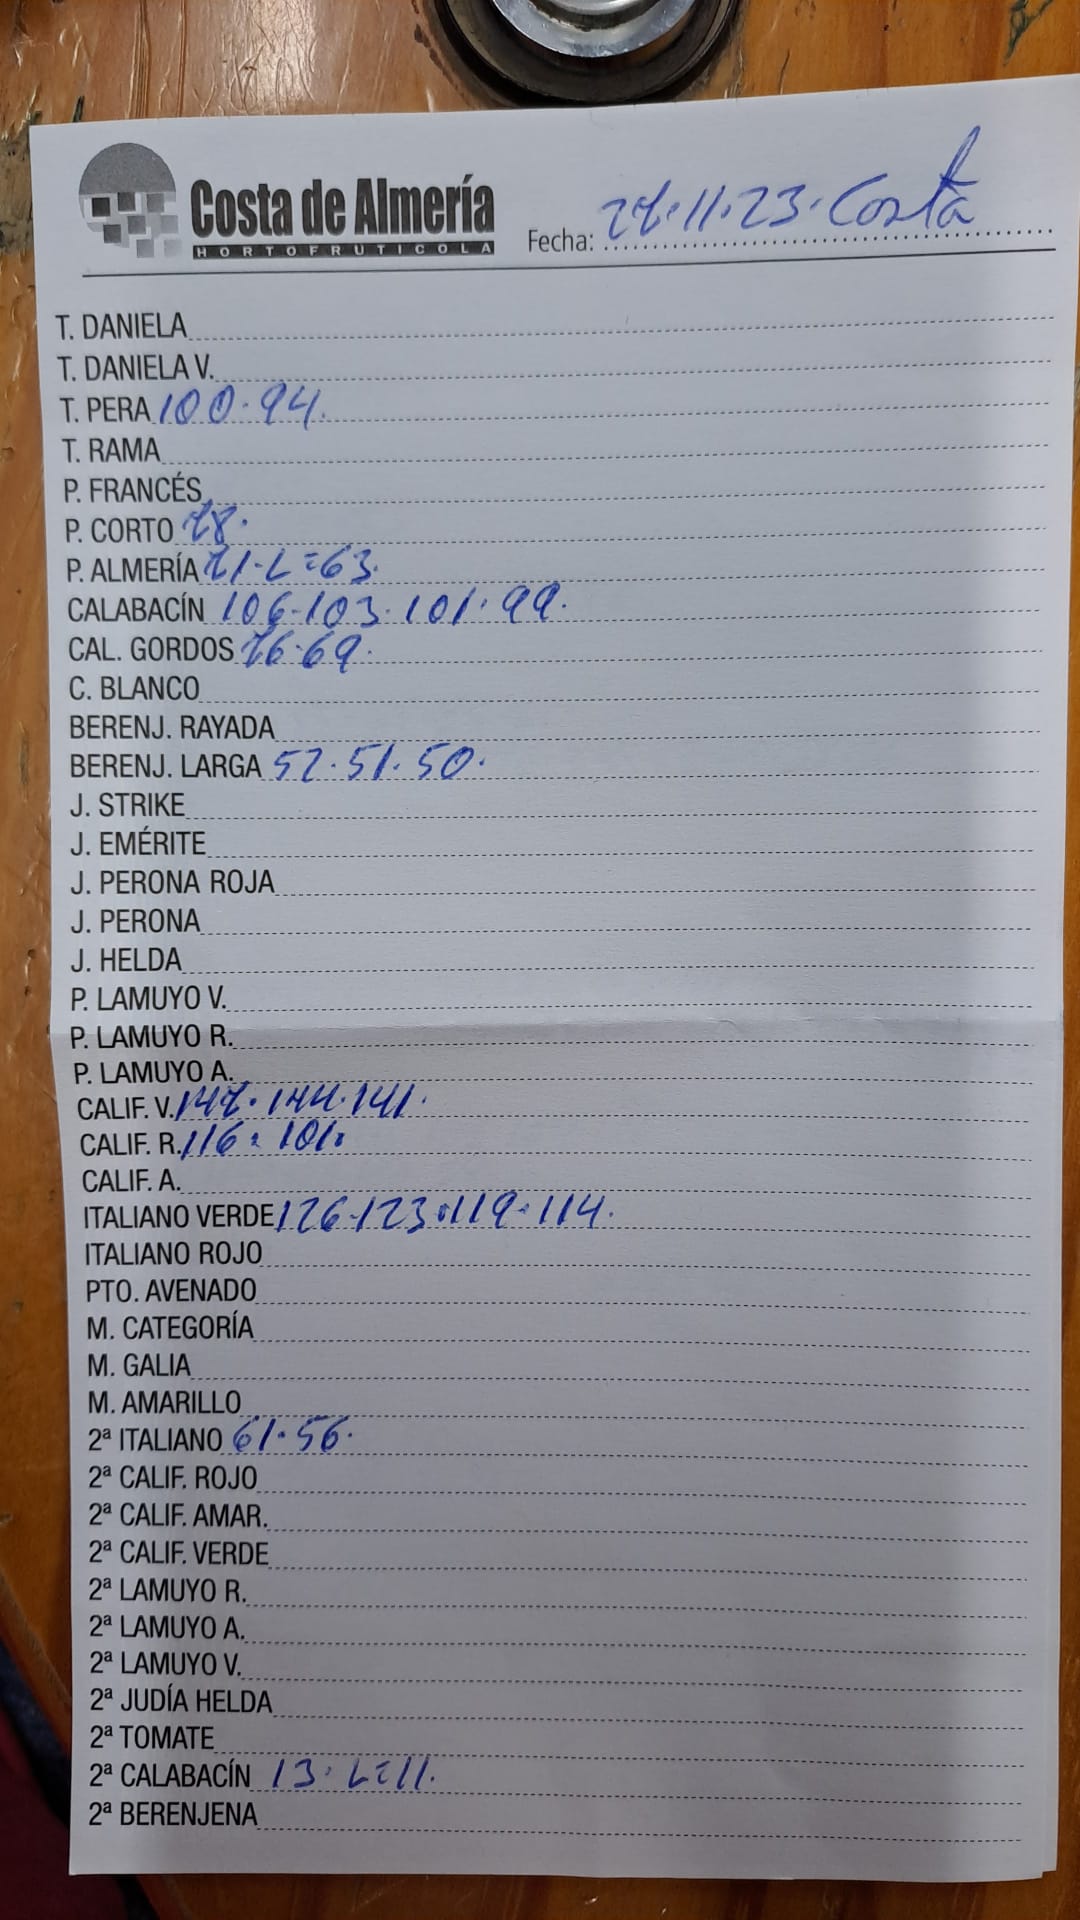 Costa de Almería
HORTOFRUTICOLA
Fecha: 27.11.23. Costa
T. DANIELA
T. DANIELA V.
T. PERA 100.94.
T. RAMA
P. FRANCÉS
P. CORTO 78.
P. ALMERÍA 71-L=63.
CALABACÍN 106-103.101.99.
CAL. GORDOS 76-69.
C. BLANCO
BERENJ. RAYADA
BERENJ. LARGA 52.51.50.
J. STRIKE
J. EMÉRITE
J. PERONA ROJA
J. PERONA
J. HELDA
P. LAMUYO V.
P. LAMUYO R.
P. LAMUYO A.
CALIF. V. 147.144.141.
CALIF. R. 116.101.
CALIF. A.
ITALIANO VERDE 126-123.119.114.
ITALIANO ROJO
PTO. AVENADO
M. CATEGORÍA
M. GALIA
M. AMARILLO
2ª ITALIANO 61.56.
2ª CALIF. ROJO
2ª CALIF. AMAR.
2ª CALIF. VERDE
2ª LAMUYO R.
2ª LAMUYO A.
2ª LAMUYO V.
2ª JUDÍA HELDA
2ª TOMATE
2ª CALABACÍN 13. L=11.
2ª BERENJENA